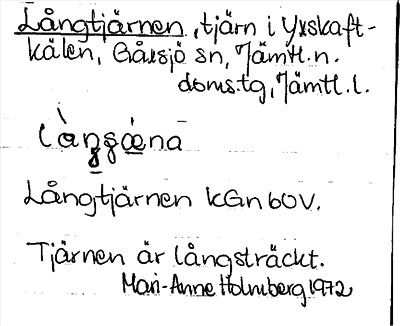 Långtjärnen, tjärn i Yxskaft-
kälen, Gåxsjö sn, Jämtl. n.
doms.tg, Jämtl. l.
Långtjärnen kGn60V.
Tjärnen är långsträckt.
Mari-Anne Holmberg 1972